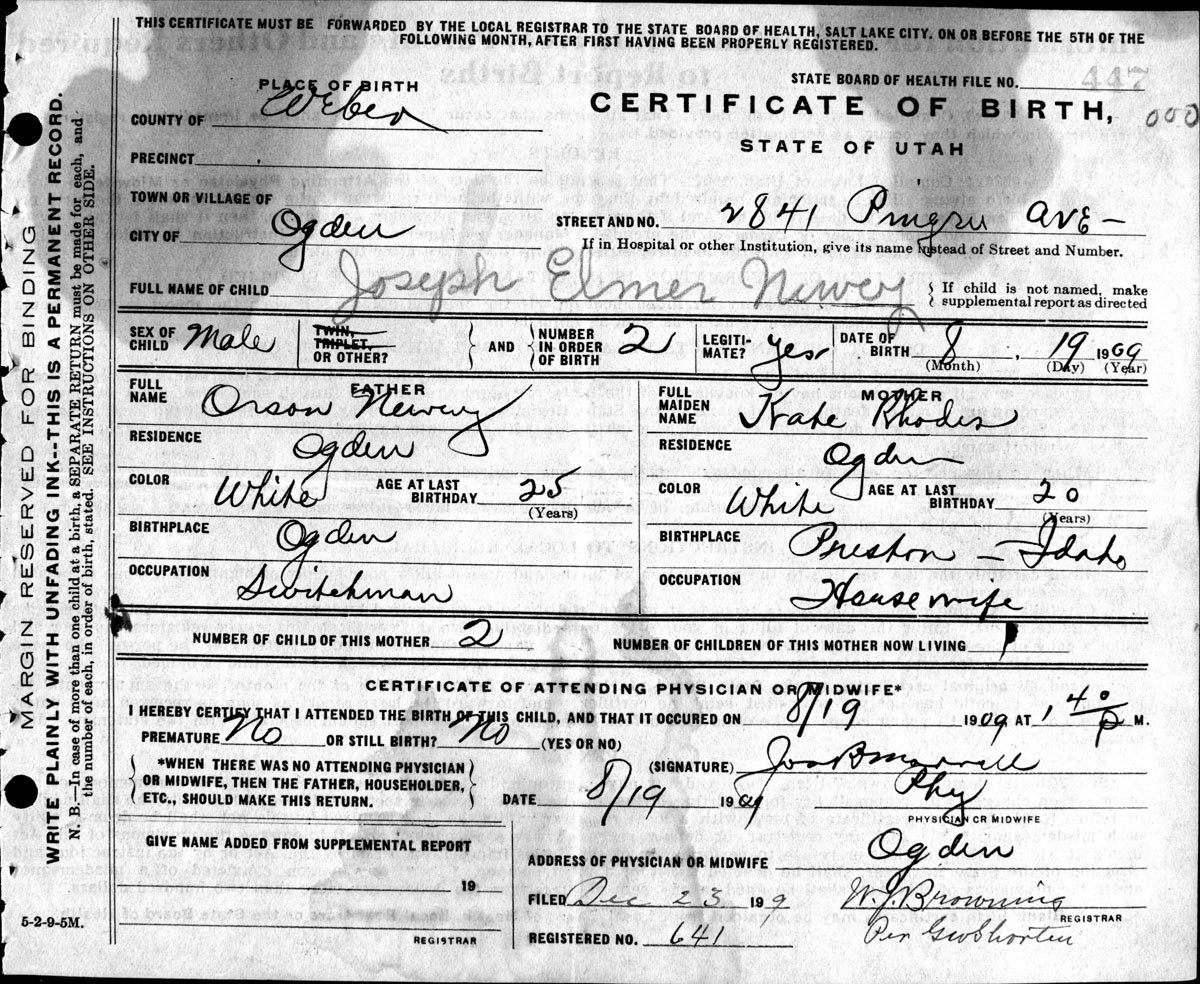 THIS CERTIFICATE MUST BE FORWARDED BY THE LOCAL REGISTRAR TO THE STATE BOARD OF HEALTH, SALT LAKE CITY. ON OR BEFORE THE 5TH OF THE
FOLLOWING MONTH, AFTER FIRST HAVING BEEN PROPERLY REGISTERED.
PLACE OF BIRTH
STATE BOARD OF HEALTH FILE NO. 447
COUNTY OF Weber
CERTIFICATE OF BIRTH,
000
PRECINCT
STATE OF UTAH
TOWN OR VILLAGE OF
CITY OF Ogden
STREET AND NO. 2841 AVE-
If in Hospital or other Institution, give its name instead of Street and Number.
FULL NAME OF CHILD Joseph Elmer Newey
If child is not named, make
supplemental report as directed
SEX OF CHILD Male
TWIN, TRIPLET, OR OTHER?
AND NUMBER IN ORDER OF BIRTH 2
LEGITIMATE? yes
DATE OF BIRTH 8, 19 1909
(Month) (Day) (Year)
FATHER
FULL NAME Orson Newey
RESIDENCE Ogden
COLOR White AGE AT LAST BIRTHDAY 25
(Years)
BIRTHPLACE Ogden
OCCUPATION Switchman
MOTHER
FULL MAIDEN NAME Kate Rhodes
RESIDENCE Ogden
COLOR White AGE AT LAST BIRTHDAY 20
(Years)
BIRTHPLACE Preston - Idaho
OCCUPATION Housewife
NUMBER OF CHILD OF THIS MOTHER 2
NUMBER OF CHILDREN OF THIS MOTHER NOW LIVING 1
CERTIFICATE OF ATTENDING PHYSICIAN OR MIDWIFE*
I HEREBY CERTIFY THAT I ATTENDED THE BIRTH OF THIS CHILD, AND THAT IT OCCURED ON 8/19 1909 AT 1 40 P M.
PREMATURE No OR STILL BIRTH? No (YES OR NO)
*WHEN THERE WAS NO ATTENDING PHYSICIAN
OR MIDWIFE, THEN THE FATHER, HOUSEHOLDER,
ETC., SHOULD MAKE THIS RETURN.
(SIGNATURE)
DATE 8/19 1909 Phy
PHYSICIAN OR MIDWIFE
GIVE NAME ADDED FROM SUPPLEMENTAL REPORT
19
REGISTRAR
ADDRESS OF PHYSICIAN OR MIDWIFE Ogden
FILED Dec 23 199 W. J. Browning
REGISTRAR
REGISTERED NO. 641 Per
5-2-9-5M.
MARGIN RESERVED FOR BINDING
WRITE PLAINLY WITH UNFADING INK--THIS IS A PERMANENT RECORD.
N. B.—In case of more than one child at a birth, a SEPARATE RETURN must be made for each, and
the number of each, in order of birth, stated. SEE INSTRUCTIONS ON OTHER SIDE.